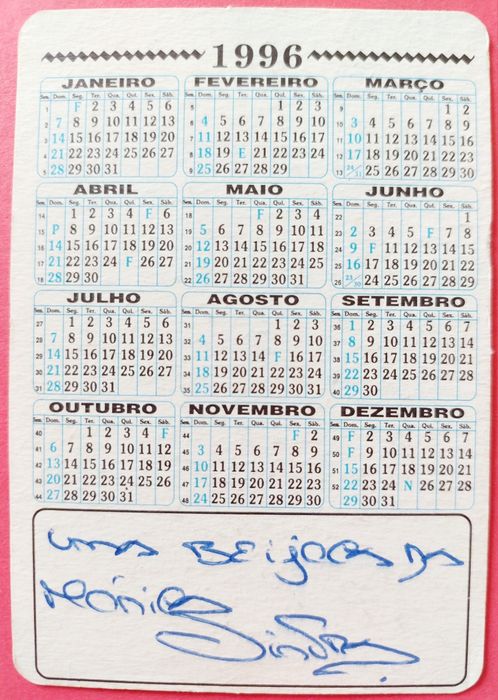 1996
JANEIRO
Sem. Dom. Seg. Ter. Qua. Qui. Sex. Sáb.
1 F 2 3 4 5 6
2 7 8 9 10 11 12 13
3 14 15 16 17 18 19 20
4 21 22 23 24 25 26 27
5 28 29 30 31
FEVEREIRO
Sem. Dom. Seg. Ter. Qua. Qui. Sex. Sáb.
5 1 2 3
6 4 5 6 7 8 9 10
7 11 12 13 14 15 16 17
8 18 19 E 21 22 23 24
9 25 26 27 28 29
MARÇO
Sem. Dom. Seg. Ter. Qua. Qui. Sex. Sáb.
9 1 2
10 3 4 5 6 7 8 9
11 10 11 12 13 14 15 16
12 17 18 19 20 21 22 23
13 24/31 25 26 27 28 29 30
ABRIL
Sem. Dom. Seg. Ter. Qua. Qui. Sex. Sáb.
14 1 2 3 4 F 6
15 P 8 9 10 11 12 13
16 14 15 16 17 18 19 20
17 21 22 23 24 F 26 27
18 28 29 30
MAIO
Sem. Dom. Seg. Ter. Qua. Qui. Sex. Sáb.
18 F 2 3 4
19 5 6 7 8 9 10 11
20 12 13 14 15 16 17 18
21 19 20 21 22 23 24 25
22 26 27 28 29 30 31
JUNHO
Sem. Dom. Seg. Ter. Qua. Qui. Sex. Sáb.
22 1
23 2 3 4 5 F 7 8
24 9 F 11 12 13 14 15
25 16 17 18 19 20 21 22
26 23/30 24 25 26 27 28 29
JULHO
Sem. Dom. Seg. Ter. Qua. Qui. Sex. Sáb.
27 1 2 3 4 5 6
28 7 8 9 10 11 12 13
29 14 15 16 17 18 19 20
30 21 22 23 24 25 26 27
31 28 29 30 31
AGOSTO
Sem. Dom. Seg. Ter. Qua. Qui. Sex. Sáb.
31 1 2 3
32 4 5 6 7 8 9 10
33 11 12 13 14 F 16 17
34 18 19 20 21 22 23 24
35 25 26 27 28 29 30 31
SETEMBRO
Sem. Dom. Seg. Ter. Qua. Qui. Sex. Sáb.
36 1 2 3 4 5 6 7
37 8 9 10 11 12 13 14
38 15 16 17 18 19 20 21
39 22 23 24 25 26 27 28
40 29 30
OUTUBRO
Sem. Dom. Seg. Ter. Qua. Qui. Sex. Sáb.
40 1 2 3 4 F
41 6 7 8 9 10 11 12
42 13 14 15 16 17 18 19
43 20 21 22 23 24 25 26
44 27 28 29 30 31
NOVEMBRO
Sem. Dom. Seg. Ter. Qua. Qui. Sex. Sáb.
44 F 2
45 3 4 5 6 7 8 9
46 10 11 12 13 14 15 16
47 17 18 19 20 21 22 23
48 24 25 26 27 28 29 30
DEZEMBRO
Sem. Dom. Seg. Ter. Qua. Qui. Sex. Sáb.
49 F 2 3 4 5 6 7
50 F 9 10 11 12 13 14
51 15 16 17 18 19 20 21
52 22 23 24 N 26 27 28
29 30 31
umas Beijocas da
Mónica Sintra